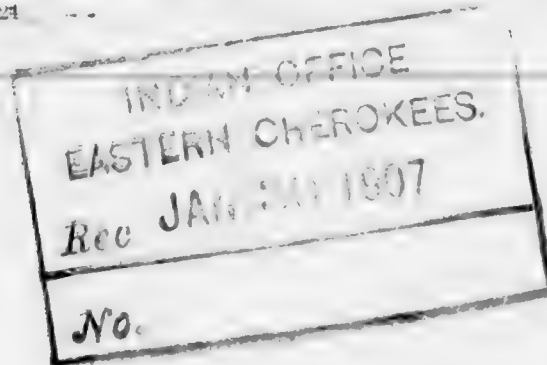 INDIAN OFFICE
EASTERN CHEROKEES.
Rec JAN 1907
No.